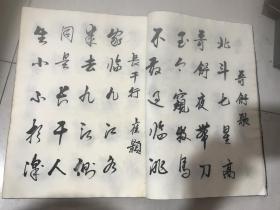 哥舒歌
北斗七星高
哥舒夜带刀
至今窥牧马
不敢过临洮
长干行 崔颢
家临九江水
来去九江侧
同是长干人
生小不相识